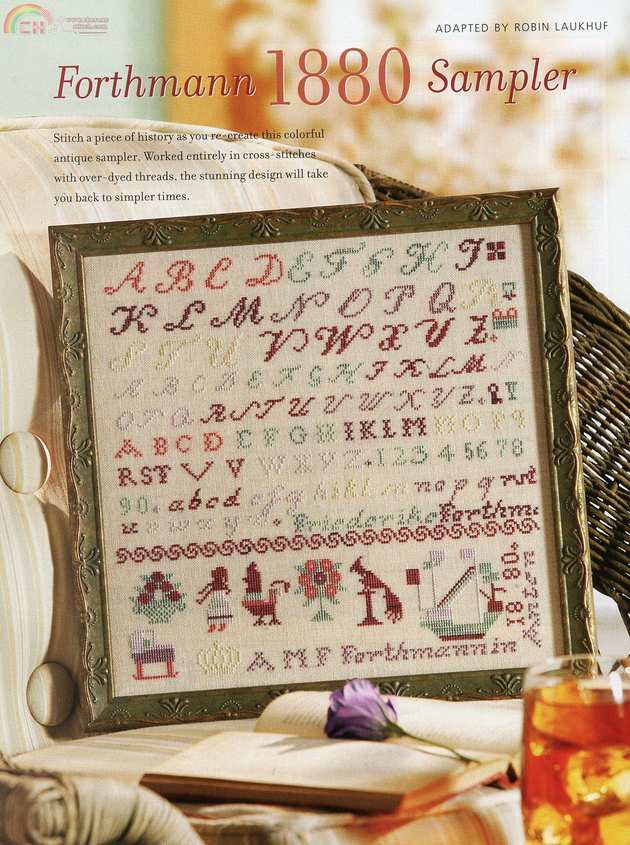 ADAPTED BY ROBIN LAUKHUF
Forthmann 1880 Sampler
Stitch a piece of history as you re-create this colorful
antique sampler. Worked entirely in cross-stitches
with over-dyed threads, the stunning design will take
you back to simpler times.
A B C D E F G H I
K L M N O P Q R
S T U V W X Y Z.
A B C D E F G H I K L M N
O P Q R S T U V W X Y Z.
A B C D E F G H I K L M N O P Q
R S T U V W X Y Z . 1 2 3 4 5 6 7 8
9 0 . a b c d e f g h i k l m n o p q r s t
u v w x y z . Friederike Forthm
1880. Anton
A M F Forthmann in